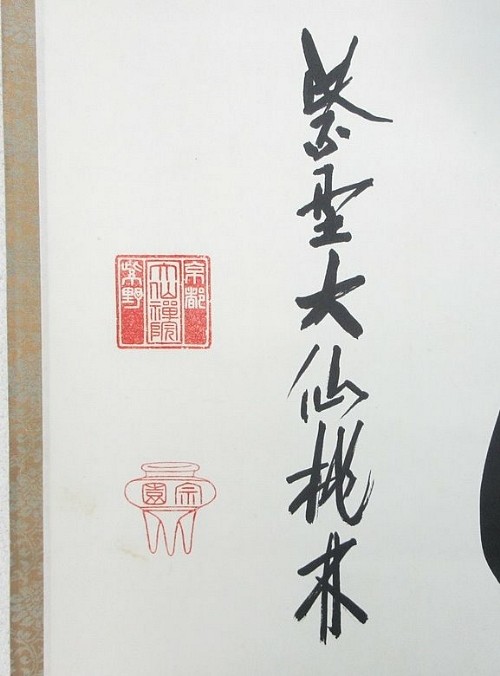 紫野大仙桃林
京都
大仙禪院
紫野
宗園